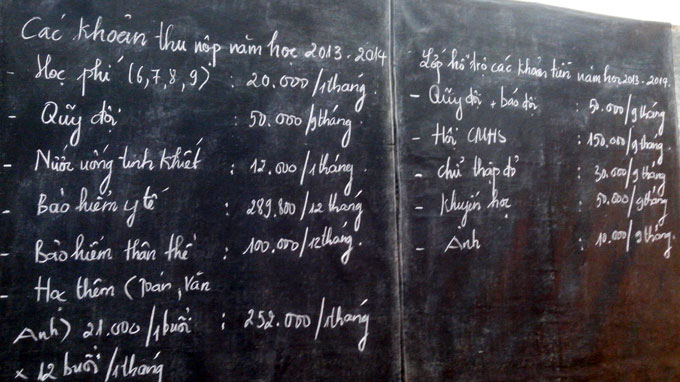 Các khoản thu nộp năm học 2013-2014
- Học phí (6,7,8,9) : 20.000/1tháng
- Quỹ đội : 50.000/9tháng
- Nước uống tinh khiết : 12.000/1tháng
- Bảo hiểm y tế : 289.800/12 tháng
- Bảo hiểm thân thể : 100.000/12tháng
- Học thêm (Toán, Văn
Anh) 21.000/1buổi : 252.000/1tháng
x 12 buổi/1tháng
Lớp hỗ trợ các khoản tiền năm học 2013-2014.
- Quỹ đội + báo đội : 50.000/9tháng
- Hội CMHS : 150.000/9tháng
- chữ thập đỏ : 30.000/9tháng
- Khuyến học : 50.000/9tháng
- Ảnh : 10.000/9tháng.